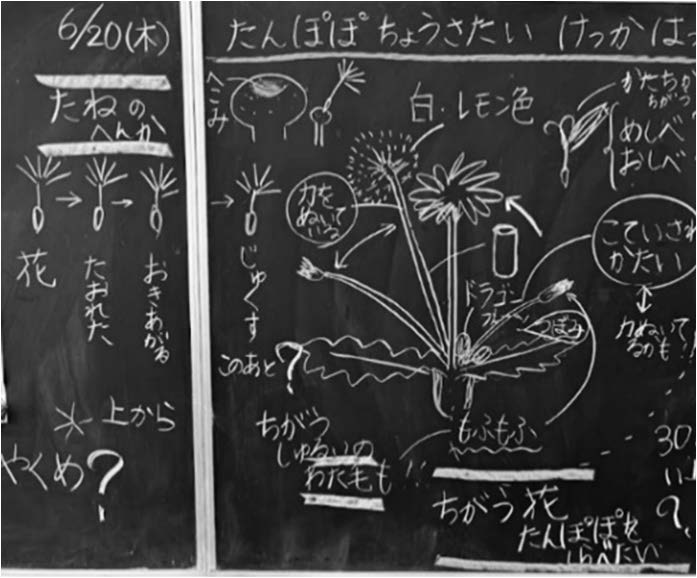 6/20(木)
たねの
へんか
花
たおれた、
おきあがる
上から
やくめ?
たんぽぽ ちょうさたい けっかはっ
へこみ
白・レモン色
かたちが
ちがう
めしべ
おしべ
力を
ぬいて
いる
じゅくす
このあと?
こていされ
かたい
ドラゴン
つぼみ
力ぬいて
るかも!!
ちがう
しゅるいの
わた毛も
もふもふ
30
?
ちがう花
たんぽぽを
しらべたい